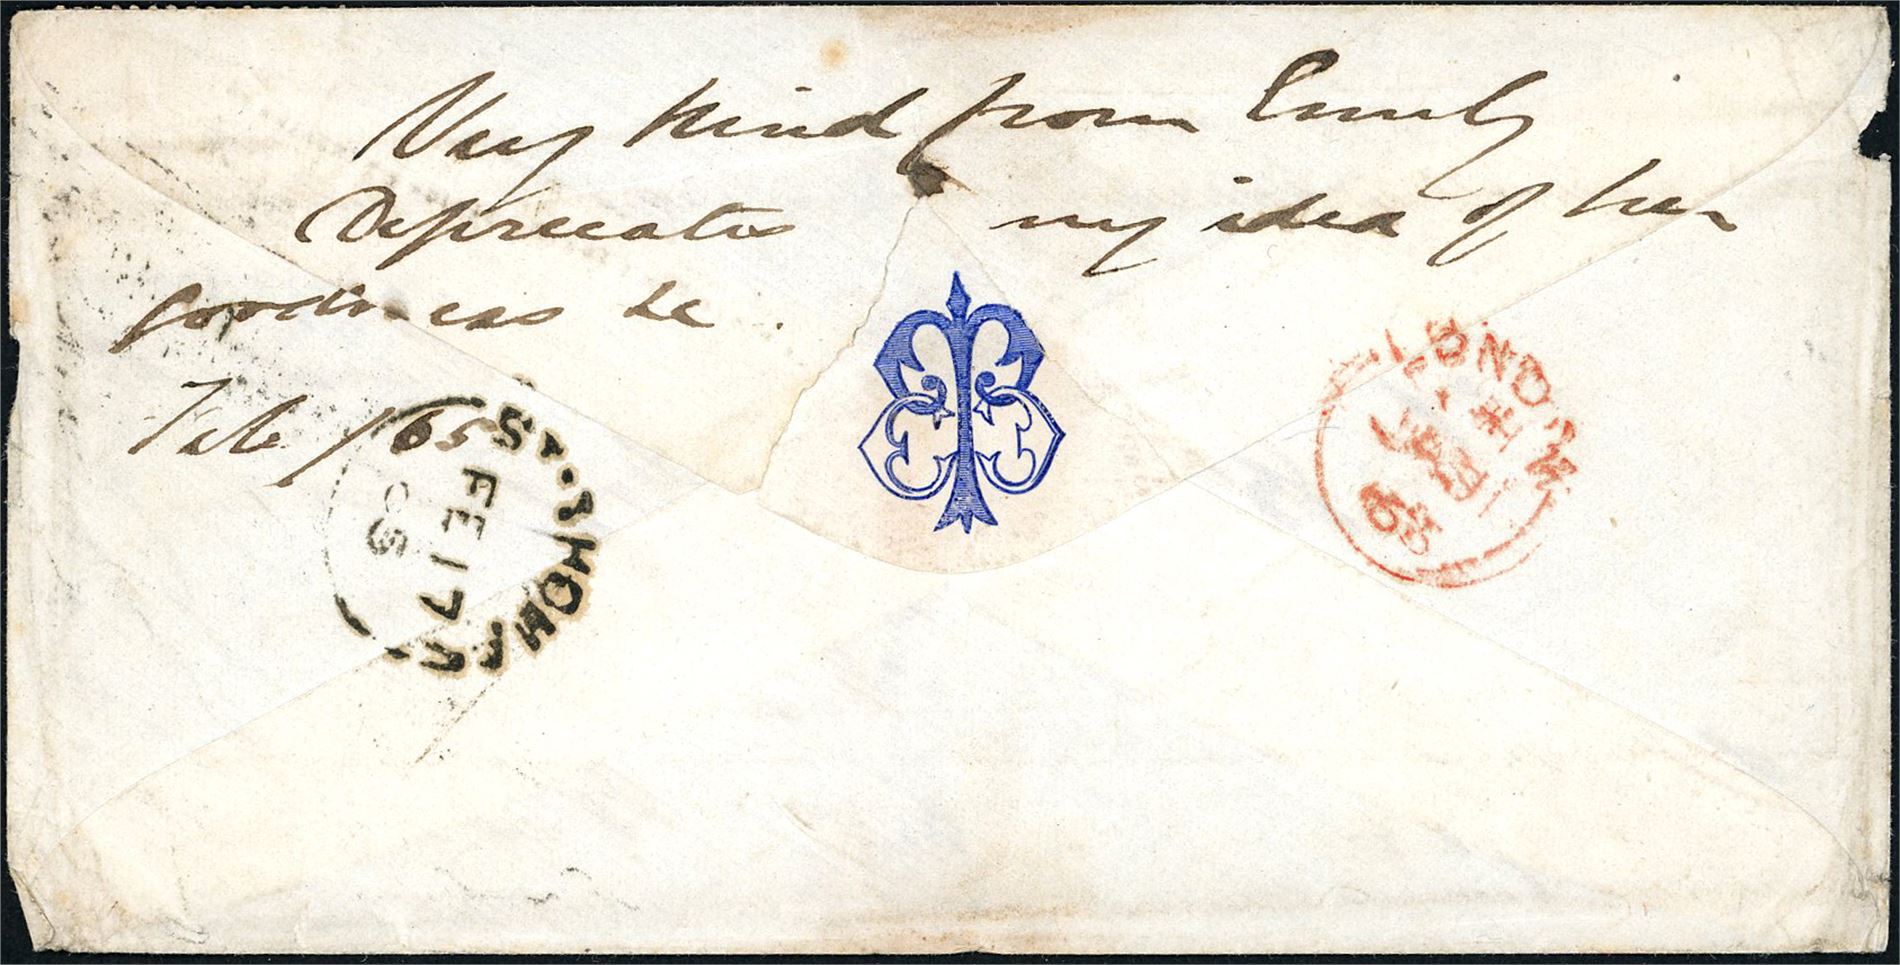 Very kind from Emily
Deprecates my idea of her
goodness &c.
Feb /65
ST. THOMAS
FE 17
65
LONDON
65